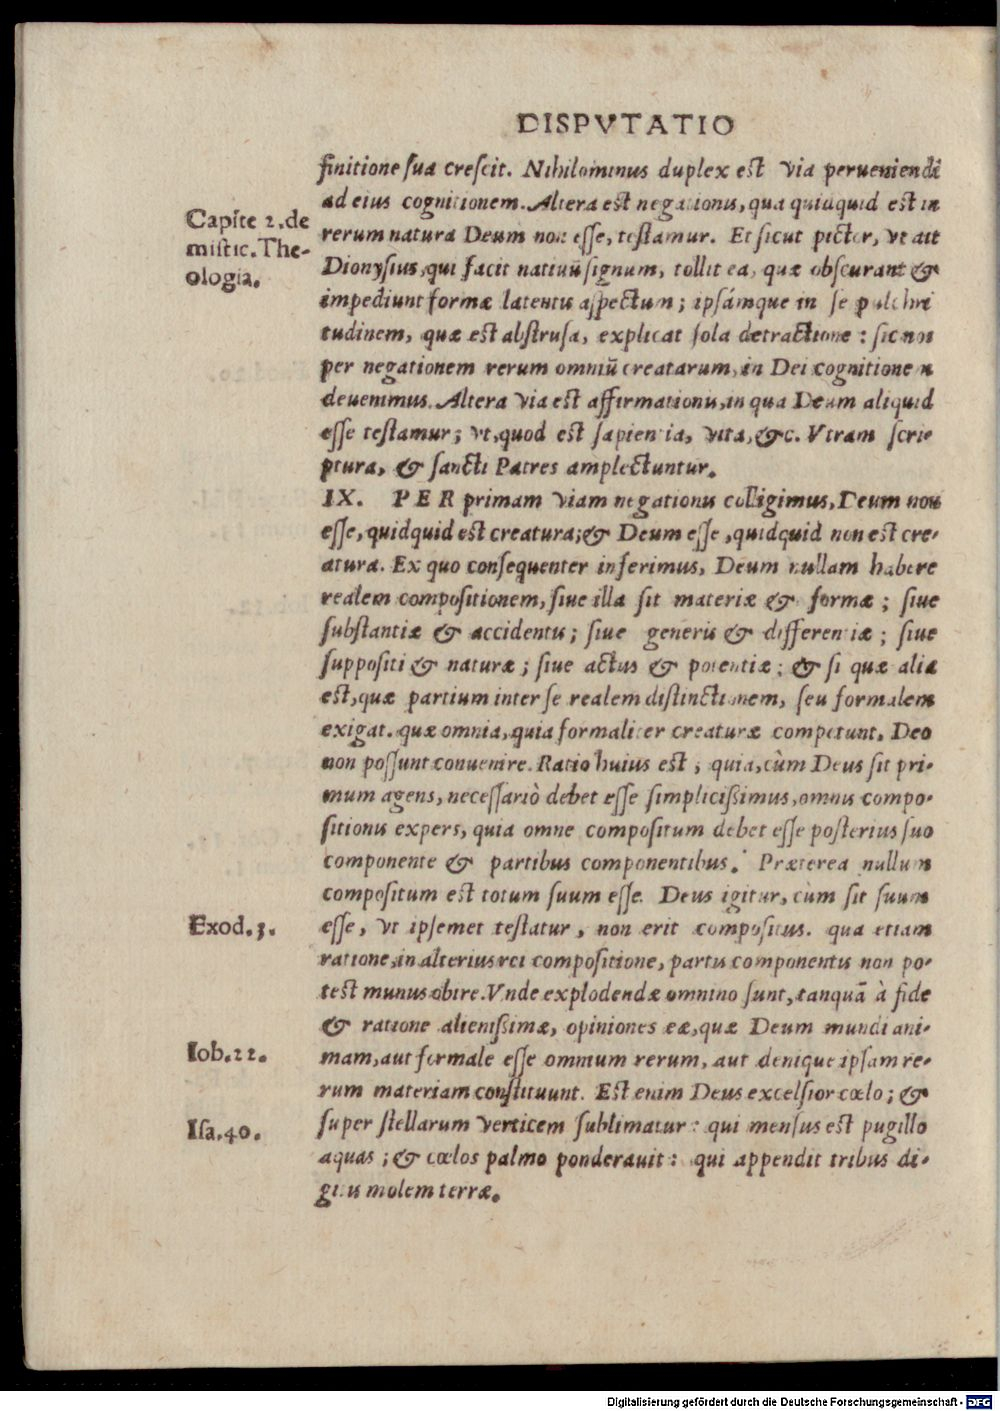 DISPVTATIO
finitione sua crescit. Nihilominus duplex est via perueniendi
ad eius cognitionem. Altera est negationis, qua quidquid est in
Capite 2. de
rerum natura Deum non esse, testamur. Et sicut pictor, vt ait
mistic. The-
Dionysius, qui facit natiuũ signum, tollit ea, quæ obscurant &
ologia.
impediunt formæ latentis aspectum; ipsámque in se pulchri
tudinem, quæ est abstrusa, explicat sola detractione: sic nos
per negationem rerum omniũ creatarum, in Dei cognitionem
deuenimus. Altera via est affirmationis, in qua Deum aliquid
esse testamur; vt, quod est sapientia, vita, &c. Vtram scri-
ptura, & sancti Patres amplectuntur.
IX. PER primam viam negationis colligimus, Deum non
esse, quidquid est creatura; & Deum esse, quidquid non est cre-
atura. Ex quo consequenter inferimus, Deum nullam habere
realem compositionem, siue illa sit materiæ & formæ; siue
substantiæ & accidentis; siue generis & differentiæ; siue
suppositi & naturæ; siue actus & potentiæ; & si quæ alia
est, quæ partium inter se realem distinctionem, seu formalem
exigat. quæ omnia, quia formaliter creaturæ competunt, Deo
non possunt conuenire. Ratio huius est, quia, cùm Deus sit pri-
mum agens, necessariò debet esse simplicißimus, omnis compo-
sitionis expers, quia omne compositum debet esse posterius suo
componente & partibus componentibus. Præterea nullum
compositum est totum suum esse. Deus igitur, cùm sit suum
Exod. 3.
esse, vt ipsemet testatur, non erit compositus. qua etiam
ratione, in alterius rei compositione, partis componentis non po-
test munus obire. Vnde explodendæ omnino sunt, tanquã à fide
& ratione alienißimæ, opiniones eæ, quæ Deum mundi ani-
Iob. 22.
mam, aut formale esse omnium rerum, aut denique ipsam re-
rum materiam constituunt. Est enim Deus excelsior cœlo; &
Isa. 40.
super stellarum verticem sublimatur: qui mensus est pugillo
aquas; & cœlos palmo ponderauit: qui appendit tribus di-
gitis molem terræ.
Digitalisierung gefördert durch die Deutsche Forschungsgemeinschaft - DFG